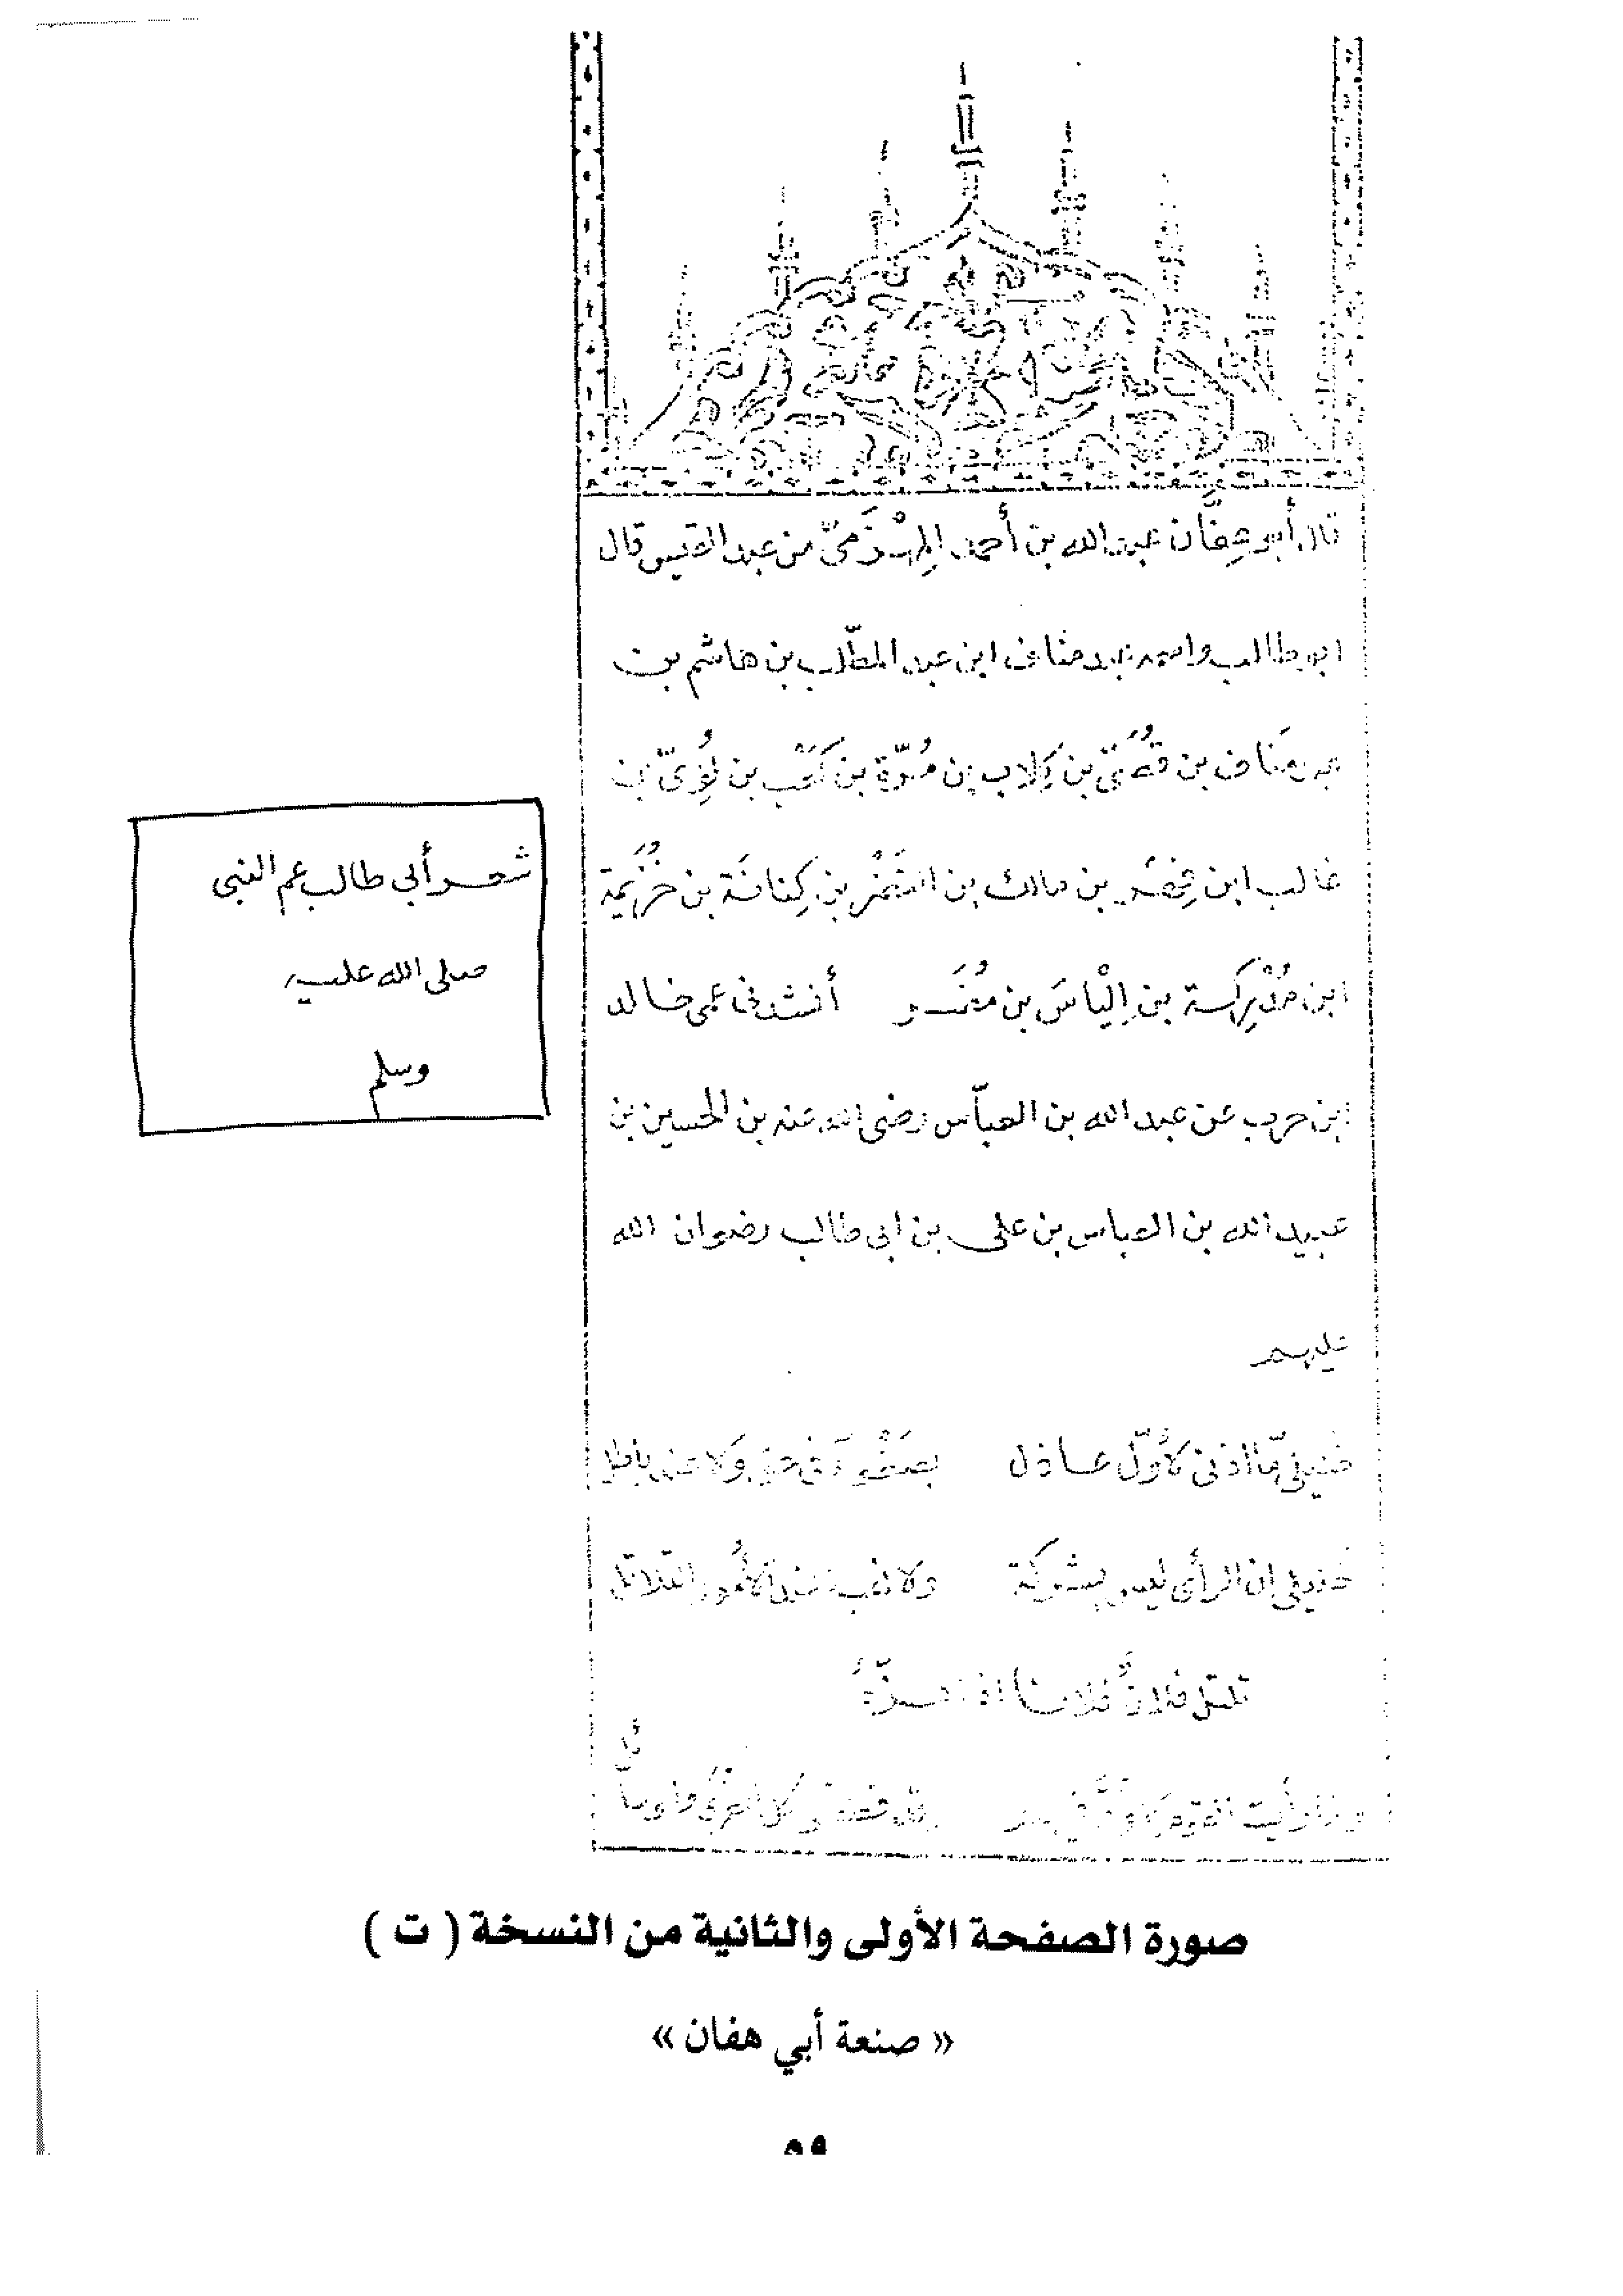 قال أبو هِفَّان عبد الله بن أحمد المِهْزَمىّ من عبد القيس قال
ابو طالب واسمه عبد مناف ابن عبد المطّلب بن هاشم بن
عبد مَناف بن قُصَىّ بن كِلاب بن مُرّة بن كَعْب بن لُؤِىّ بن
غالب ابن فِهْر بن مالك بن النَضْر بن كِنانَة بن خُزَيْمة
ابن مُدْرِكَة بن اِلْياسَ بن مُضَر أنشدنى عمى خالد
ابن حرب عن عبد الله بن العبّاس رضى الله عنه بن الحسين بن
عبيد الله بن العباس بن على بن ابى طالب رضوان الله
عليهم
خليلىّ ما اذنى لأوّل عاذل بصَغْواءَ فى حق وَلا عند باطل
خليلى ان الرأى ليس بشركة ولا نهنه عند الأُمور التلاتل
واذا رأيت القوم
شعر أبى طالب عم النبى
صلى الله عليه
وسلم
صورة الصفحة الأولى والثانية من النسخة ( ت )
« صنعة أبي هفان »
٥٩